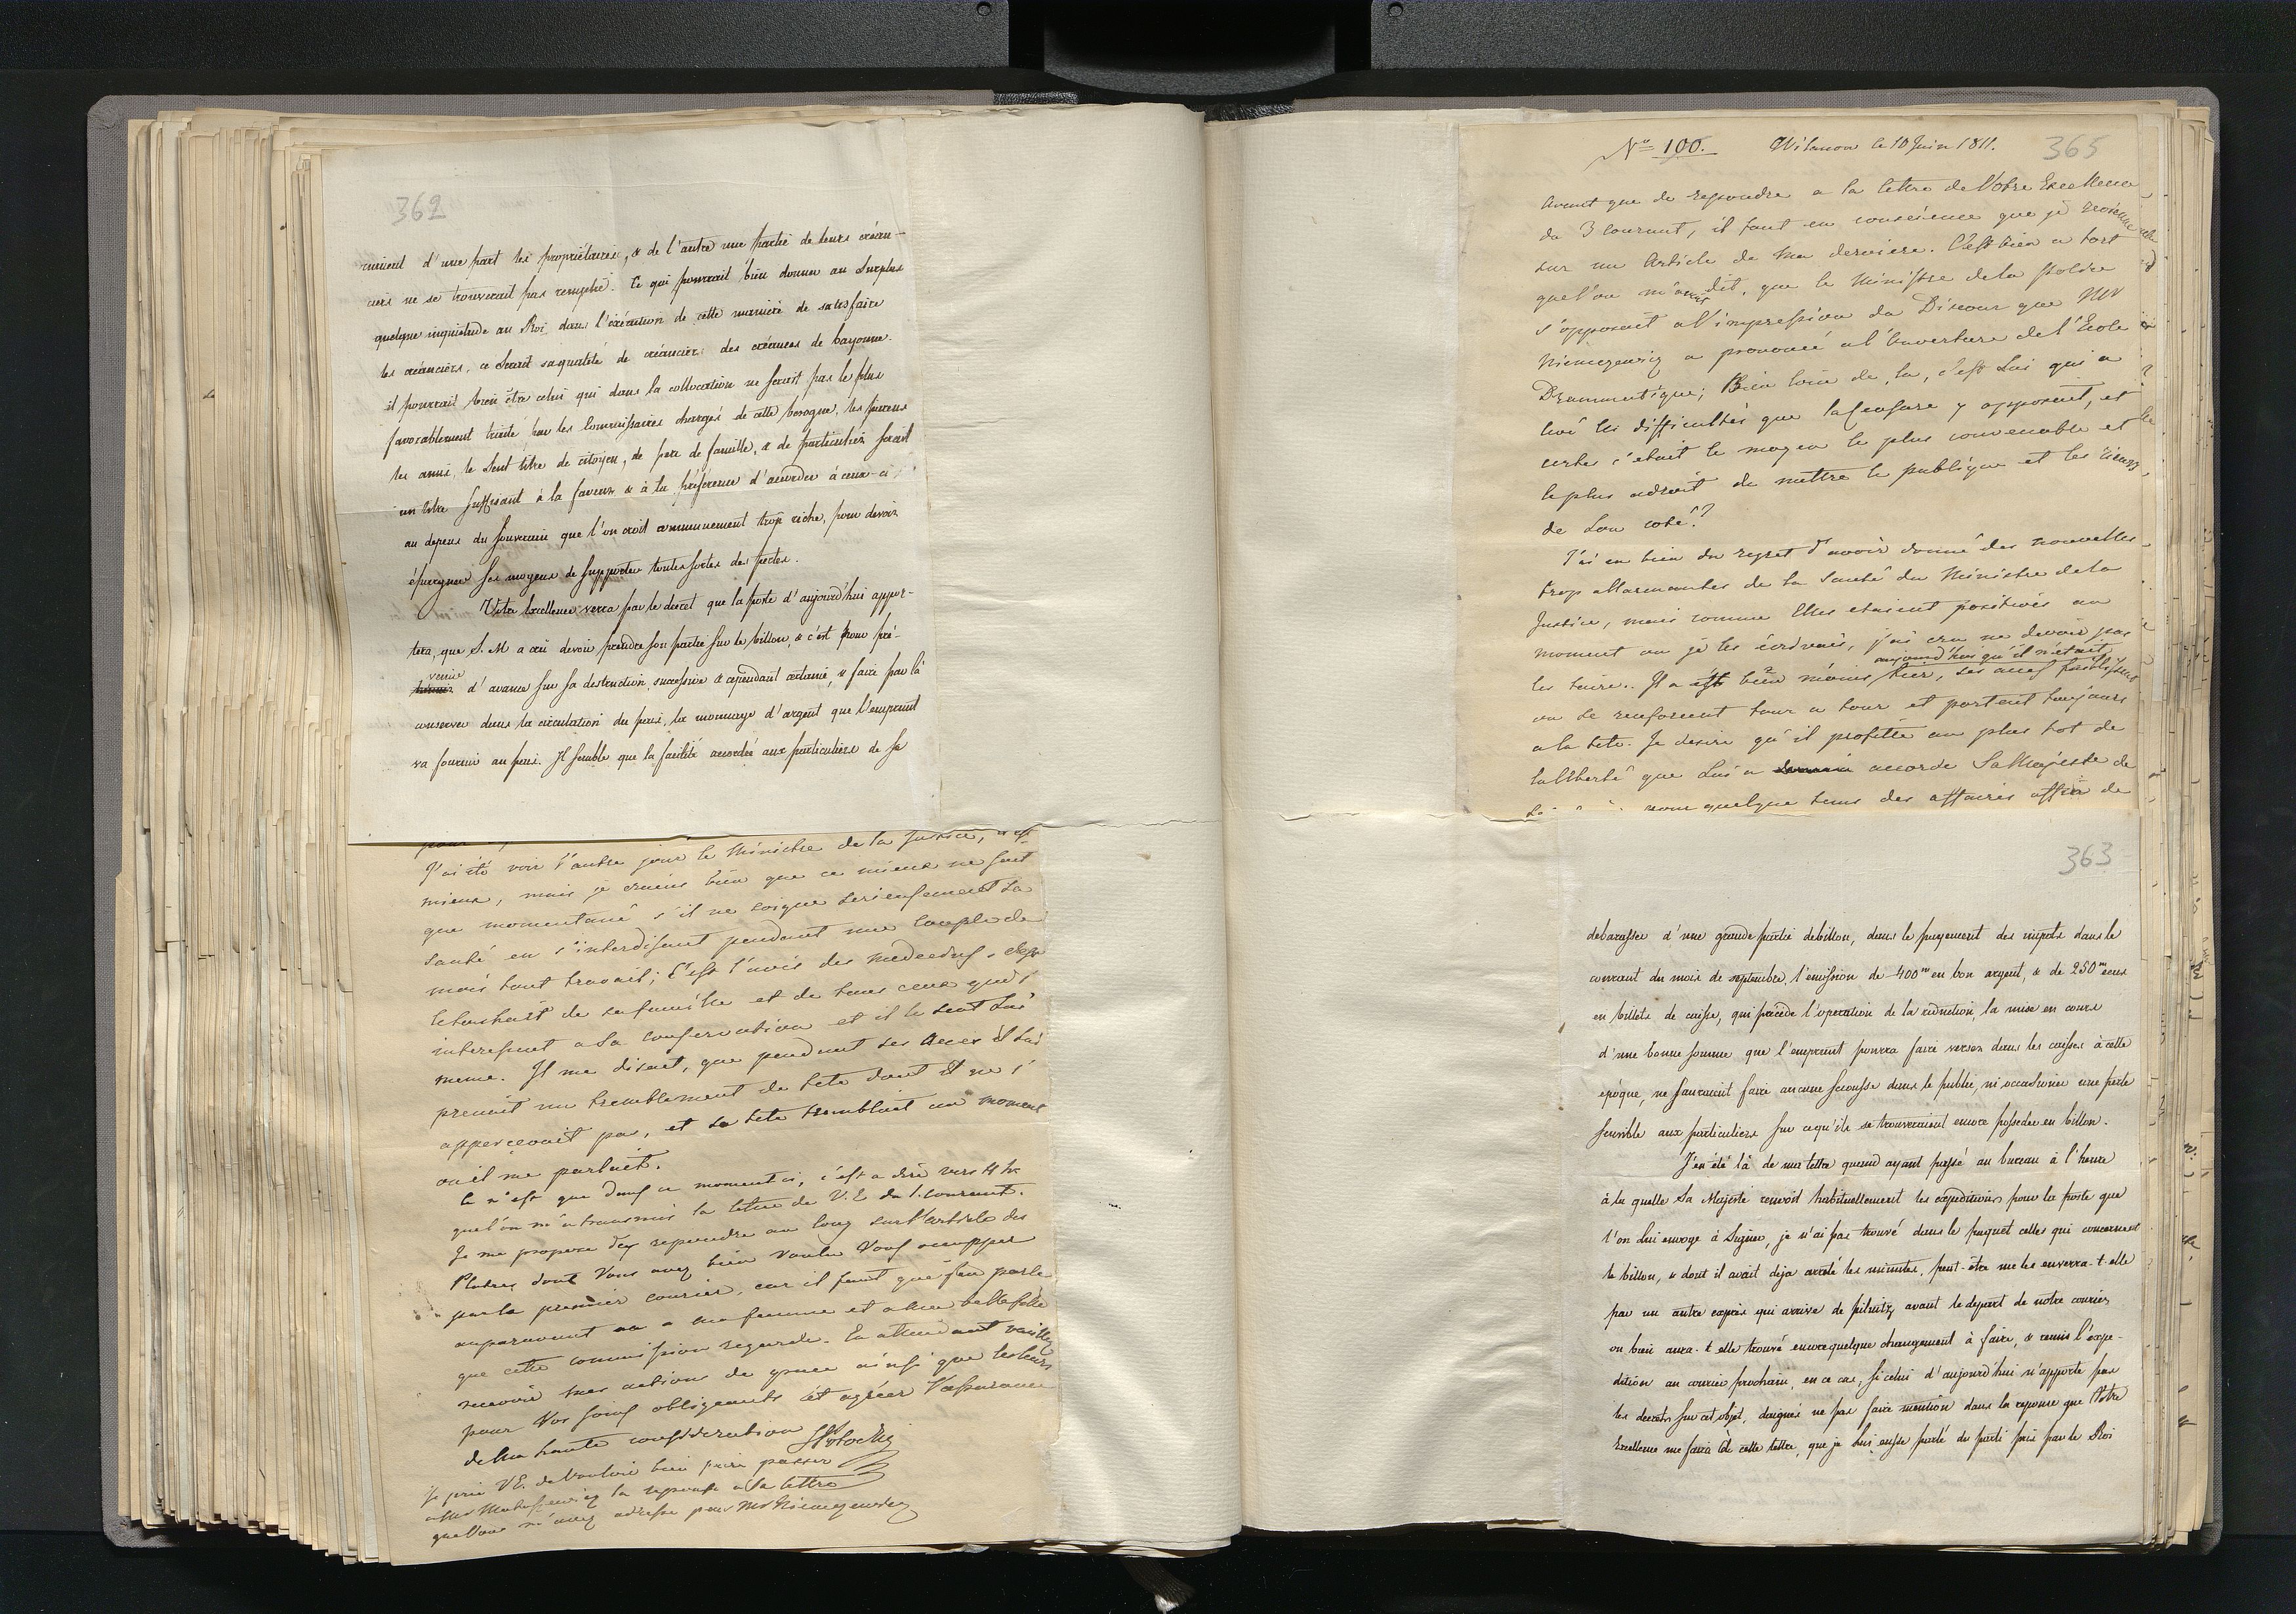 362
raient d'une part les propriétaires, & de l'autre une partie de leurs créan-
ciers ne se trouverait pas remplie. Ce qui pourrait bien donner au Surplus
quelque inquietude au Roi, dans l'éxécution de cette manière de satisfaire
les créanciers, ce serait sa qualité de créancier des créances de bayonne.
il pourrait bien être celui qui dans la collocation ne serait pas le plus
favorablement traité par les Commissaires chargés de cette besogne, les parens
les amis, le seul titre de citoyen, de père de famille, & de particulier serait
un titre suffisant à la faveur & à la préférence d'accorder à ceux-ci
au depens du souverain que l'on croit communement trop riche, pour devoir
épargner ses moyens de supporter toutes sortes de pertes.
Votre Excellence verra par le decret que la poste d'aujourd'hui appor-
tera, que S. M a crû devoir prendre son partie sur le billon, & c'est pour pré-
venir d'avance sur sa destruction, successive & cependant certaine, & faire par là
conserver dans la circulation du pais, la monnaye d'argent que l'emprunt
va fournir au pais. Il semble que la facilité accordée aux particuliers de se
J'ai été voir l'autre jour le Ministre de la Justice, il est
mieux, mais je crains bien que ce mieux ne soit
que momentané s'il ne soigne serieusement sa
santé en s'interdisant pendant une couple de
mois tout travail; C'est l'avis des medecins,
le souhait de sa famille et de tous ceux qui s'
interessent a sa conservation et il le sent lui
meme. Il me disait, que pendant ses acces il lui
prenait un tremblement de tete dont il ne s'
appercevait pas, et sa tete tremblait au moment
ou il me parlait.
Ce n'est que dans ce moment ci, c'est a dire vers 4 h
que l'on m'a transmis la lettre de V. E du 1. courant.
Je me propose d'y repondre au long sur l'article des
Platres dont Vous avez bien voulu Vous occupper
par le premier courier, car il faut que j'en parle
auparavant a ma femme et a ma belle fille
que cette commission regarde. En attendant veuillez
recevoir mes actions de grace ainsi que les leurs
pour Vos soins obligeants et agréer l'assurance
de ma haute consideration
SPotocki
Je prie V.E. de vouloir bien faire passer
a Mr Matuszewicz la reponse a la lettre
que Vous m'avez adressé pour Mr Niemczewicz
No 100. Wilanow le 10 Juin 1811.
365
Avant que de repondre a la lettre de Votre Excellence
du 3 courant, il faut en conscience que je revienne
sur un Article de ma derniere. C'est bien a tort
que l'on m'avait dit, que le Ministre de la Police
s'opposait a l'impression du Discour que Mr
Niemczewicz a prononcé a l'Ouverture de l'Ecole
Drammatique; Bien loin de la, c'est lui qui a
levé les difficultés que la Censure y opposait, et
certes c'etait le moyen le plus convenable et
le plus adroit de mettre le publique et les rieurs
de son coté.
J'ai eu bien du regret d'avoir donné des nouvelles
trop allarmantes de la Santé du Ministre de la
Justice, mais comme Elles etaient positives au
moment ou je les ecrivais, j'ai cru ne devoir pas
aujourd'hui qu'il n'etait
les taire. Il a été bien moins hier, ses
ou se renforcent tour a tour et portent toujours
a la tete. Je desire qu'il profitte au plus tot de
la liberté que Lui a accorde Sa Majeste de
pour quelque tems des affaires affin de
363
debarasser d'une grande partie de billon, dans le payement des impots dans le
courant du mois de septembre, l'emission de 400m en bon argent, & de 250m ecus
en billets de caisse, qui précède l'operation de la réduction, la mise en cours
d'une bonne somme que l'emprunt pourra faire verser dans les caisses à cette
epoque, ne sauraient faire aucune secousse dans le public, ni occasioner une perte
sensible aux particuliers sur ce qu'ils se trouveraient encore posseder en billon.
J'en été là de ma lettre quand ayant passé au bureau à l'heure
à la quelle Sa Majesté renvoit habituellement les expeditions pour la poste que
l'on Lui envoye à Signer, je n'ai pas trouvé dans le paquet celles qui concernent
le billon, & dont il avait deja arreté les minutes, peut-être me les enverra-t-elle
par un autre exprès qui arrive de pilnitz avant le depart de notre courier
ou bien aura-t elle trouvé encore quelque changement à faire, & remis l'expe-
dition au courier prochain, en ce cas, si celui d'aujourd'hui n'apporte pas
les decrets sur cet objet, daignés ne pas faire mention dans la reponse que Votre
Excellence me faira à cette lettre, que je lui eusse parlé du parti pris par le Roi